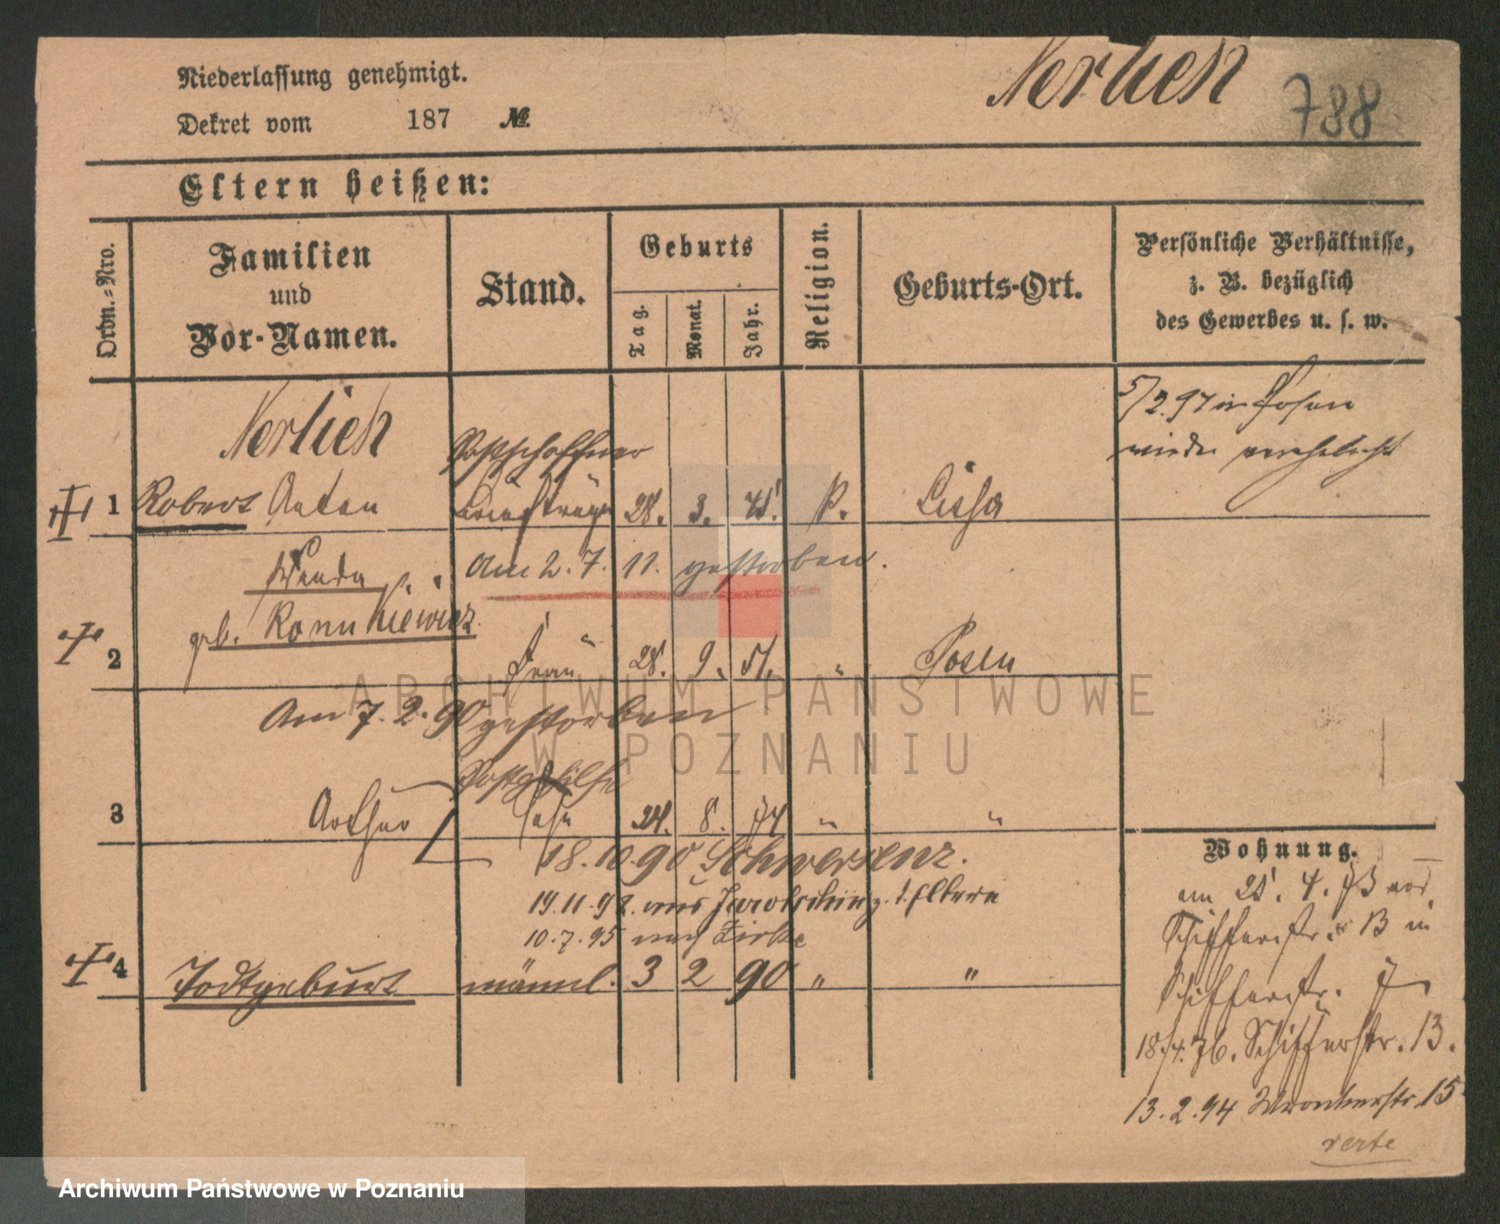 Niederlassung genehmigt.
Nerlich 788
Dekret vom 187 №.
Eltern heißen:
Ordn.-Nro.
Familien
und
Vor-Namen.
Stand.
Geburts
Tag.
Monat.
Jahr.
Religion.
Geburts-Ort.
Persönliche Verhältnisse,
z. B. bezüglich
des Gewerbes u. s. w.
Nerlich
Postschaffner
5/2.97 in Posen
wieder verehelicht
1 Robert Anton Briefträger 28. 3. Lissa
Wanda
Am 2. 7. 11. gestorben.
geb.
2 Frau 28. 9. 51. " Posen
Am 7. 2. 90 gestorben
ARCHIWUM PAŃSTWOWE
W POZNANIU
Postgehilfe
3 Arthur Sohn 24. 8. 74 " "
18. 10. 90 Schwersenz.
19. 11. 92. aus z. d. Eltern
10. 7. 95 nach Zirke
4 Todtgeburt männl. 3 2 90 " "
Wohnung.
am 25. 4. 73 von
Schifferstr. 13 in
Schifferstr. 7
18/4. 76. Schifferstr. 13.
13. 2. 94 Wronkerstr. 15
verte
Archiwum Państwowe w Poznaniu